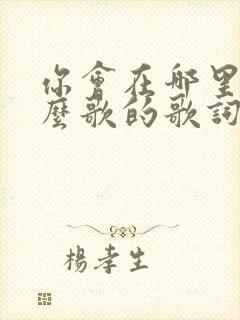 你會在哪里
麼歌的歌詞
楊孝生